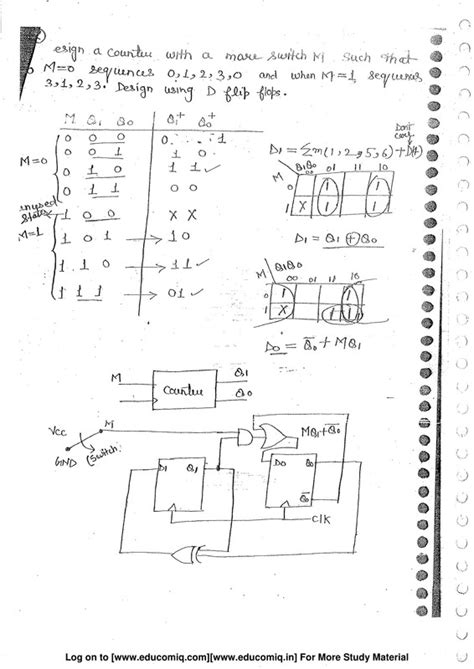 esign a Counter with a mare switch M. Such that
M=0 sequences 0,1,2,3,0 and when M=1 sequences
3,1,2,3. Design using D flip flops.
M Q1 Q0 Q1+ Q0+
M=0
0 0 0 0 1
0 0 1 1 0
0 1 0 1 1 ✓
0 1 1 0 0
unused state
1 0 0 X X
M=1
1 0 1 → 1 0
1 1 0 → 1 1 ✓
1 1 1 → 0 1 ✓
Dont care
D1 = Σm(1,2,5,6)+D(4)
M Q1Q0 01 11 10
0 1 1
1 X 1 1
D1 = Q1 ⊕ Q0
M Q1Q0
00 01 11 10
0 1 1
1 X 1 1
D0 = Q̅0 + MQ1
M Counter Q1
Q0
Vcc M MQ1+Q̅0
GND (Switch
D1 Q1 D0 Q0
Q̅0
Clk
Log on to [www.educomiq.com][www.educomiq.in] For More Study Material